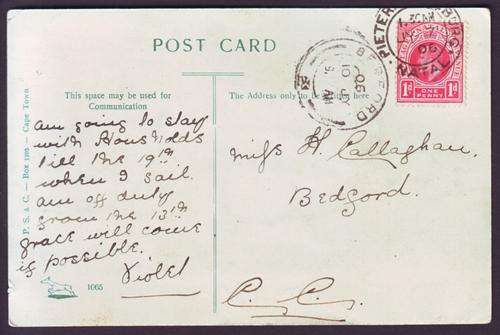 POST CARD
This space may be used for
Communication
The Address only to be written here
P. S. & C. — Box 1595 — Cape Town
am going to stay
with
till the 19th
when I sail.
am off duty
from the 13th
Grace will come
if possible.
Violet
1065
Miss H. Callaghan.
Bedford.
C. C.
BEDFORD
PIETERMARITZBURG
NATAL
06
ONE
PENNY
1d
1d